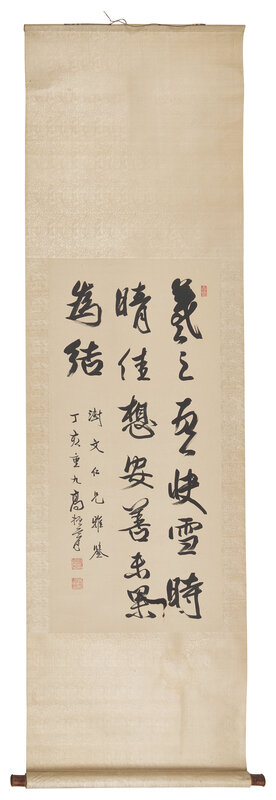 羲之頁快雪時
晴佳想安善未果
為結
澍文仁兄雅鑒
丁亥重九高振霄